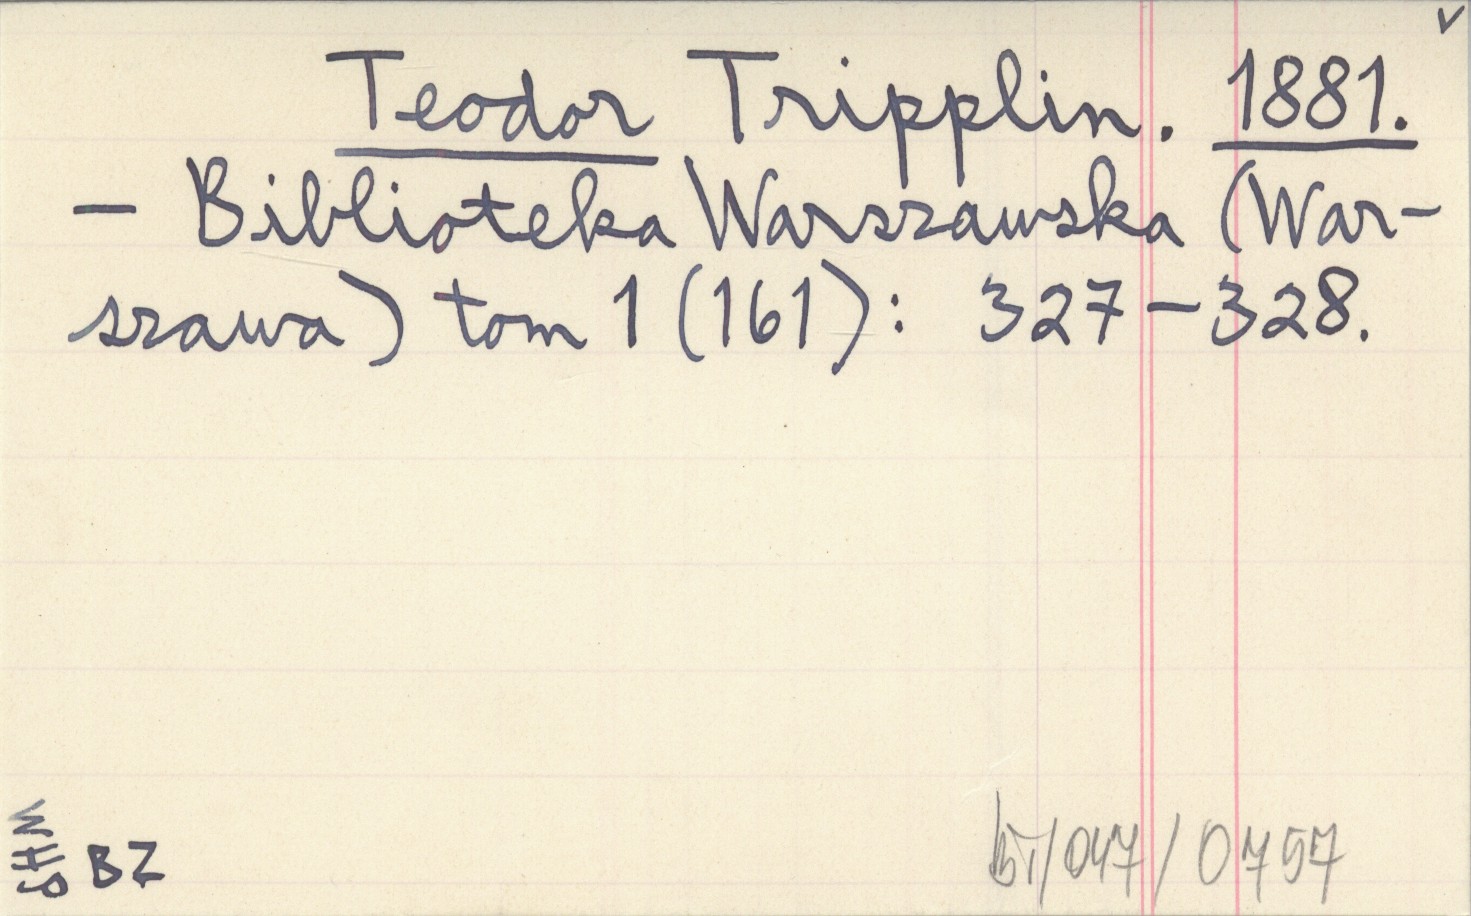 v
Teodor Tripplin. 1881.
— Biblioteka Warszawska (War-
szawa) tom 1 (161): 327-328.
BZ
/047/0757